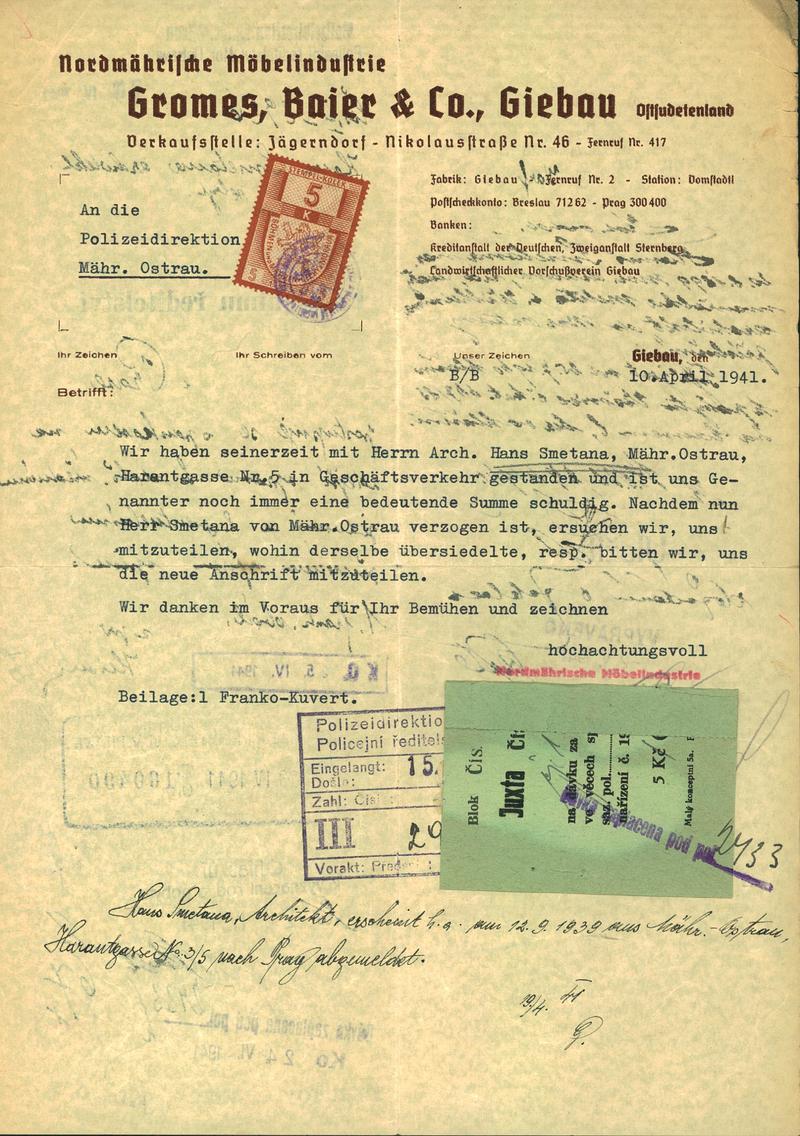 Nordmährische Möbelindustrie
Gromes, Baier & Co., Giebau Ostsudetenland
Verkaufsstelle: Jägerndorf - Nikolausstraße Nr. 46 - Fernruf Nr. 417
Fabrik: Giebau Fernruf Nr. 2 - Station: Domstadtl
Postscheckkonto: Breslau 71262 - Prag 300400
Banken:
Kreditanstalt der Deutschen, Zweiganstalt Sternberg
Landwirtschaftlicher Vorschußverein Giebau
STEMPEL-KOLEK
5
K
5
An die
Polizeidirektion
Mähr. Ostrau.
Ihr Zeichen Ihr Schreiben vom Unser Zeichen Giebau, den
B/B 10.April 1941.
Betrifft:
Wir haben seinerzeit mit Herrn Arch. Hans Smetana, Mähr.Ostrau,
Harantgasse Nr.5 in Geschäftsverkehr gestanden und ist uns Ge-
nannter noch immer eine bedeutende Summe schuldig. Nachdem nun
Herr Smetana von Mähr.Ostrau verzogen ist, ersuchen wir, uns
mitzuteilen, wohin derselbe übersiedelte, resp. bitten wir, uns
die neue Anschrift mitzuteilen.
Wir danken im Voraus für Ihr Bemühen und zeichnen
hochachtungsvoll
Nordmährische Möbelindustrie
Beilage:1 Franko-Kuvert.
Polizeidirektio
Policejní ředitels
Eingelangt: 15.
Došlo:
Zahl: Čís
III 29
Vorakt: Pred
Blok Čís.
Juxta Čí
na dávku za
ve věcech sp
saz. pol.
nařízení č. 19
5 Kč
Malý konceptní 5a.
zaplacena pod pol
2433
Hans Smetana, Architekt, erscheint h.a. am 12.9.1939 aus Mähr.-Ostrau,
Harantgasse No.3/5 nach Prag abgemeldet.
19/4. 41